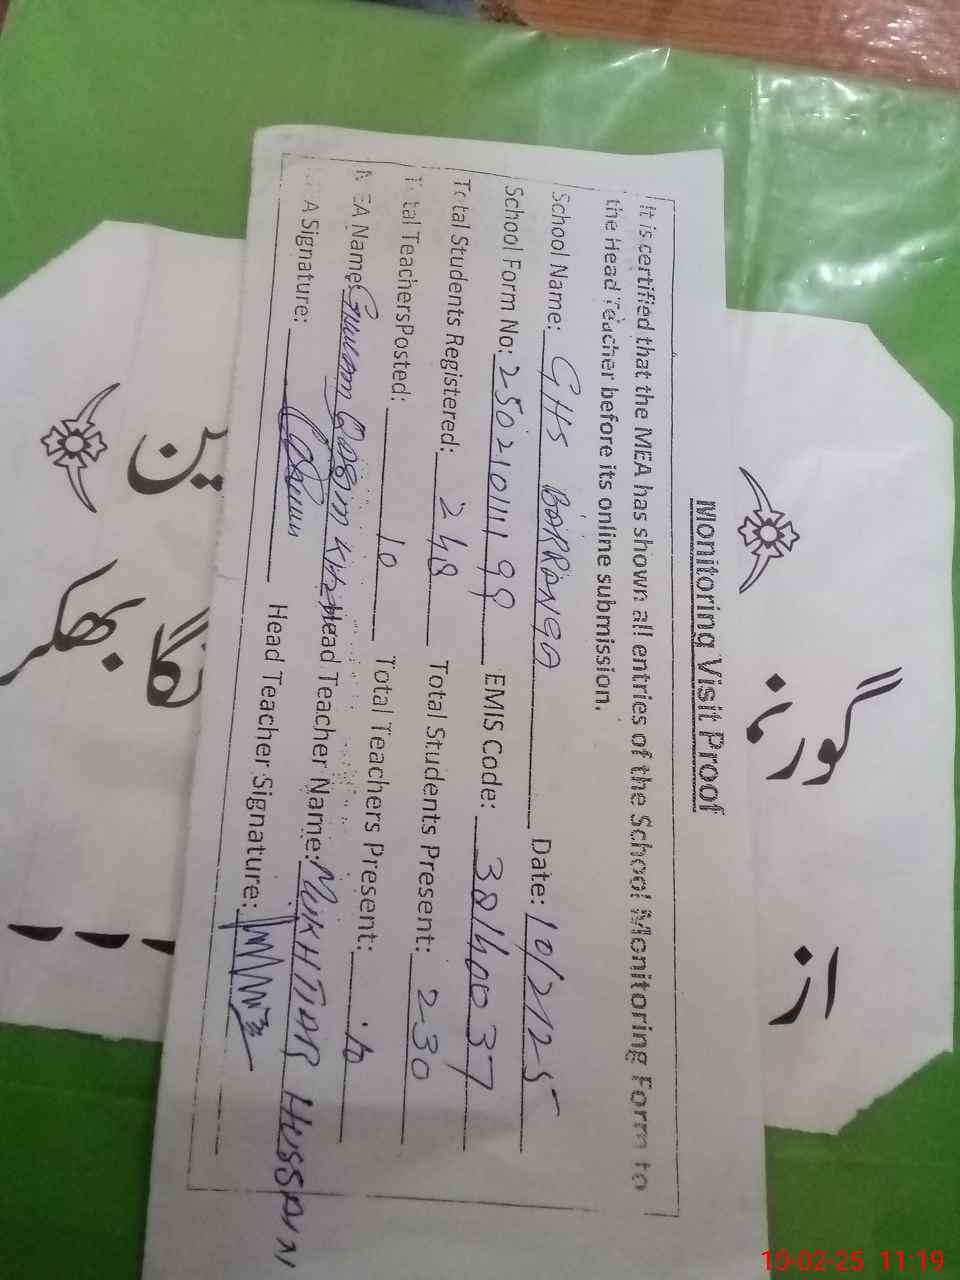 Monitoring Visit Proof
It is certified that the MEA has shown all entries of the School Monitoring Form to
the Head Teacher before its online submission.
School Name: GHS BARRANGA Date: 10/2/25
School Form No: 25021011199 EMIS Code: 38140037
Total Students Registered: 248 Total Students Present: 230
Total Teachers Posted: 10 Total Teachers Present: 10
MEA Name: Head Teacher Name: MUKHTIAR HUSSAIN
MEA Signature: Head Teacher Signature:
گورنمنٹ
از
بھکر
10-02-25 11:19